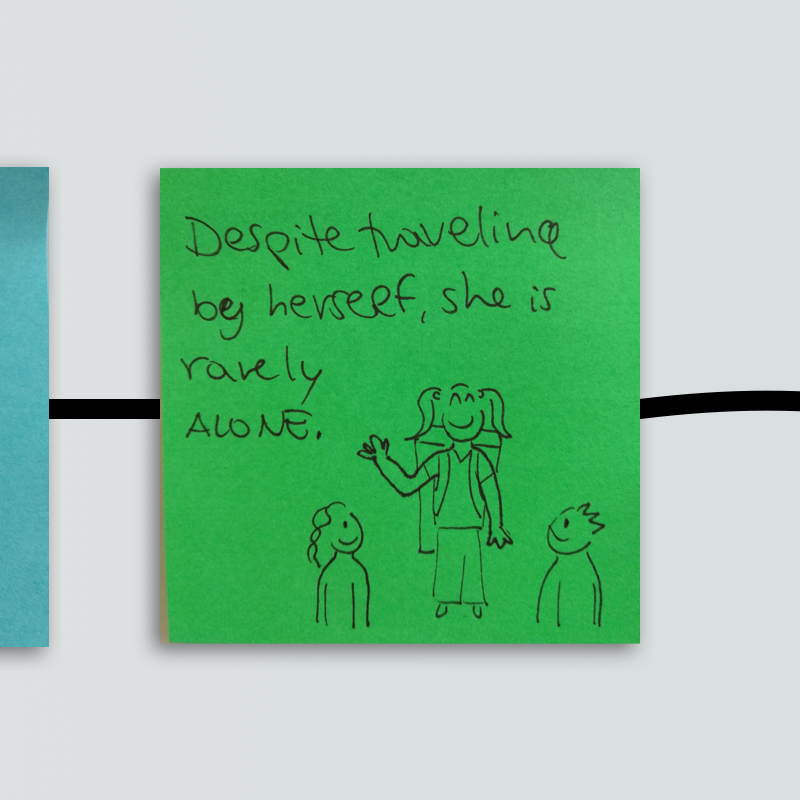 Despite traveling
by herself, she is
rarely
ALONE.